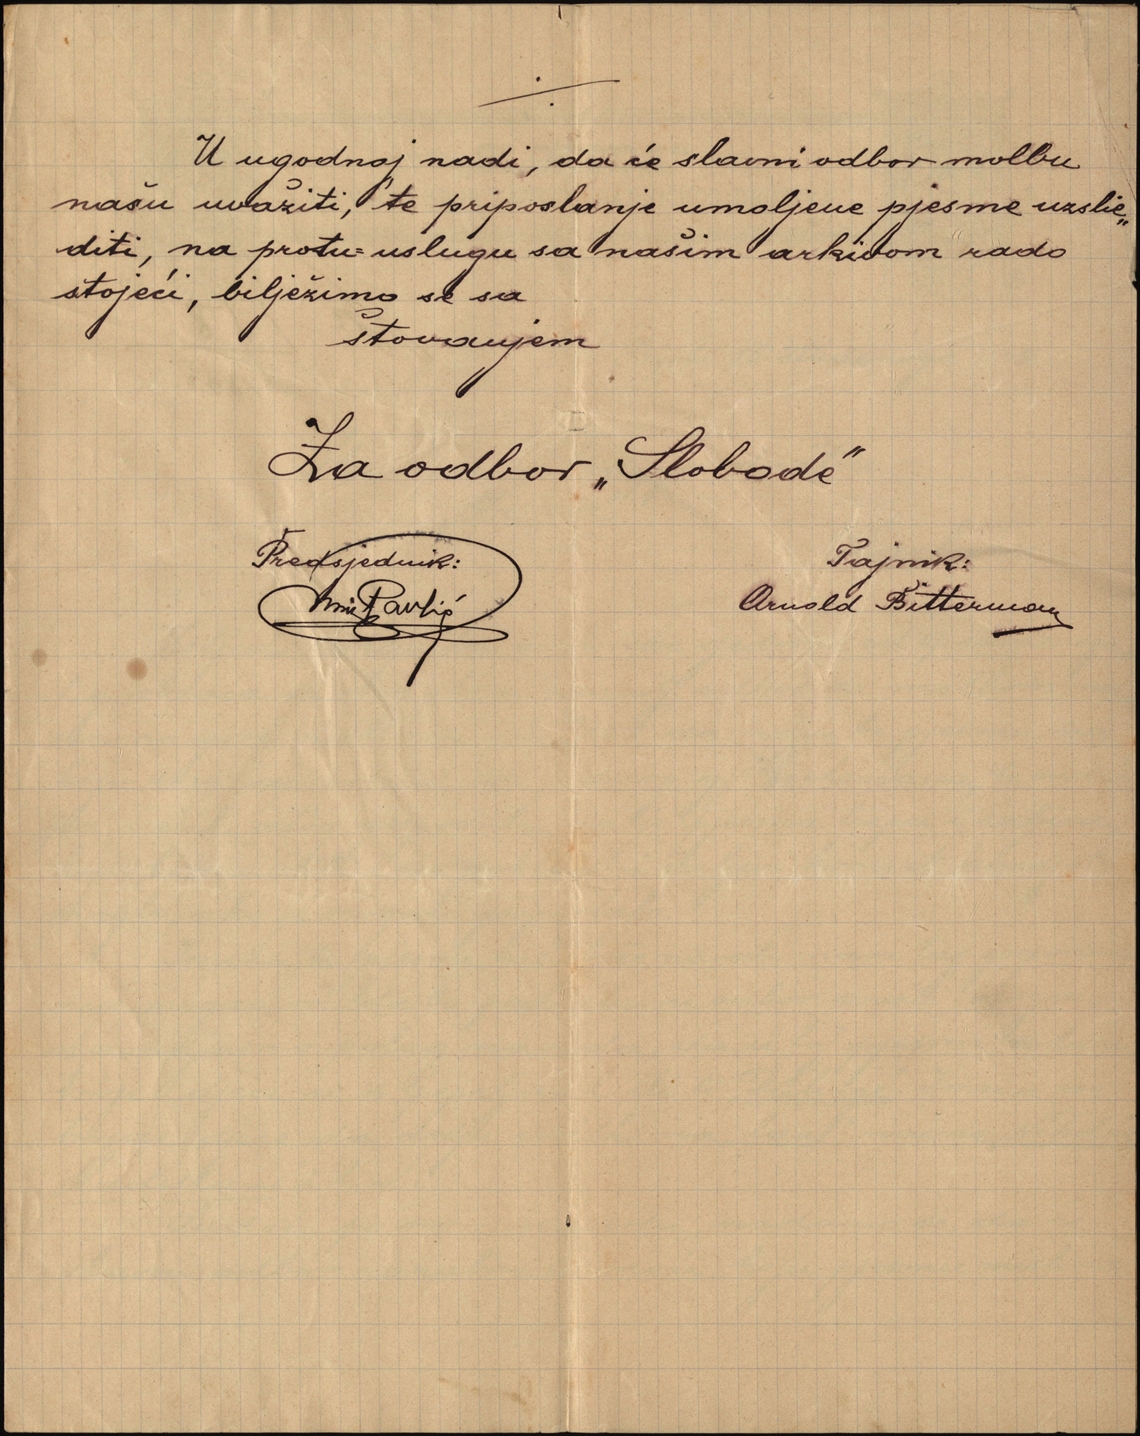 U ugodnoj nadi, da će slavni odbor molbu
našu uvažiti, te priposlanje umoljene pjesme uzslie„
diti, na protu=uslugu sa našim arkivom rado
stojeći, bilježimo se sa
štovanjem
Za odbor „Slobode"
Predsjednik:
Tajnik:
Pavlić
Arnold Bitterman